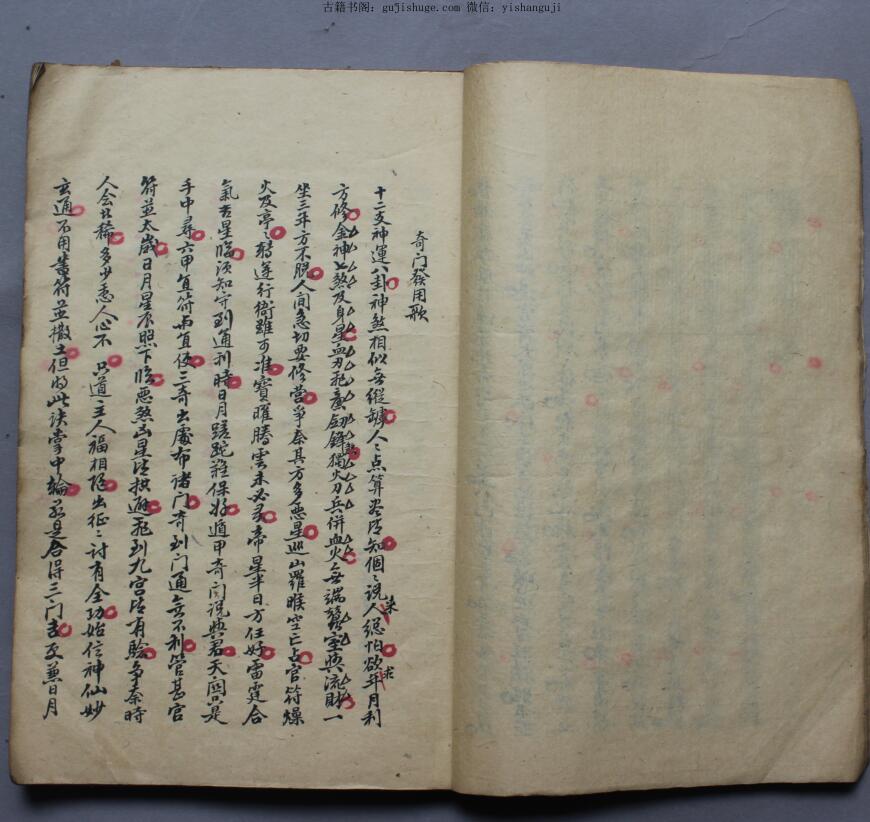 古籍书阁: gujishuge.com 微信: yishanguji
奇门發用歌
十二支神運八卦神煞相似無縱人〻点算皆知個〻說人總怕欲年月利
荣
求
方修金神七煞及身星血刃死劍鋒獨火刀兵併血火無端蠶室與流財一
坐三年方不脫人間急切要修營爭奈其方多惡星巡山羅睺空亡占官符燥
火及亭〻轉運行衙雖可准寶曜騰雲未必灵帝星半日方任好雷霆合
氣吉星臨須知守到通利時日月蹉跎難保好遁甲奇门說與君天関只是
手中尋六甲直符而直使三奇出處布诸门奇到门通無不利管甚官
符並太歲日月星辰照下臨惡煞凶星皆拱避飛到九宫皆有驗争奈時
人会者稀多少愚人心不只道主人福相随出征〻討有全功始信神仙妙
玄通不用書符並撒土但明此诀掌中輪若是合得三门吉更兼日月